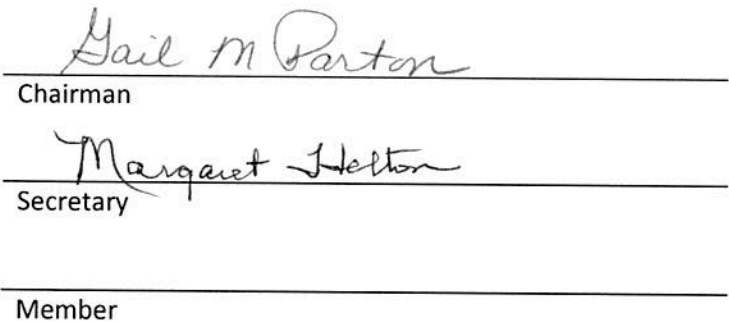 Gail M Parton
Chairman
Margaret Helton
Secretary
Member